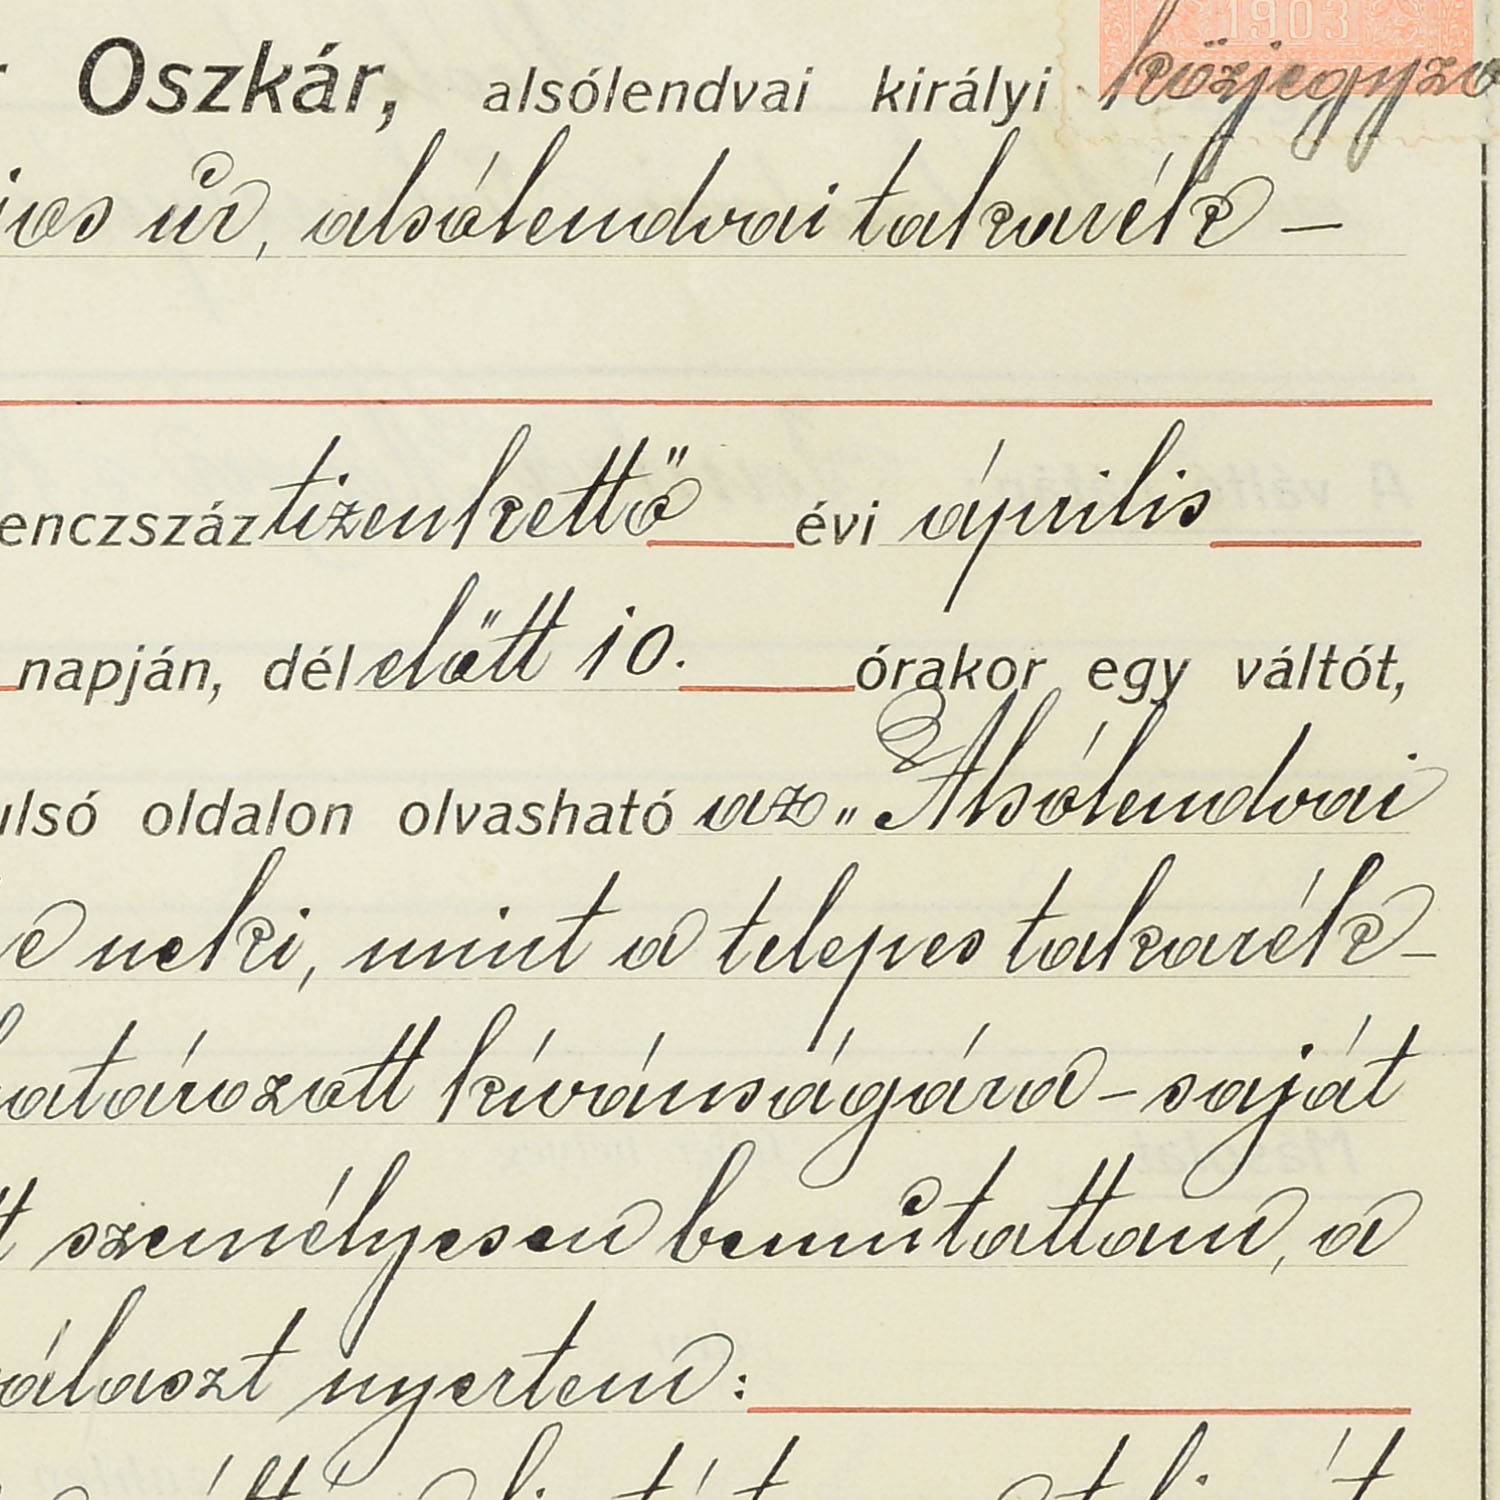 1903
Oszkár, alsólendvai királyi közjegyző
úr, alsólendvai takarék –
enczszáz tizenkettő évi április
napján, délelőtt 10. órakor egy váltót,
ulsó oldalon olvasható az „Alsólendvai
e neki, mint a telepes takarék-
határozott kívánságára – saját
tt személyesen bemutattam, a
választ nyertem: